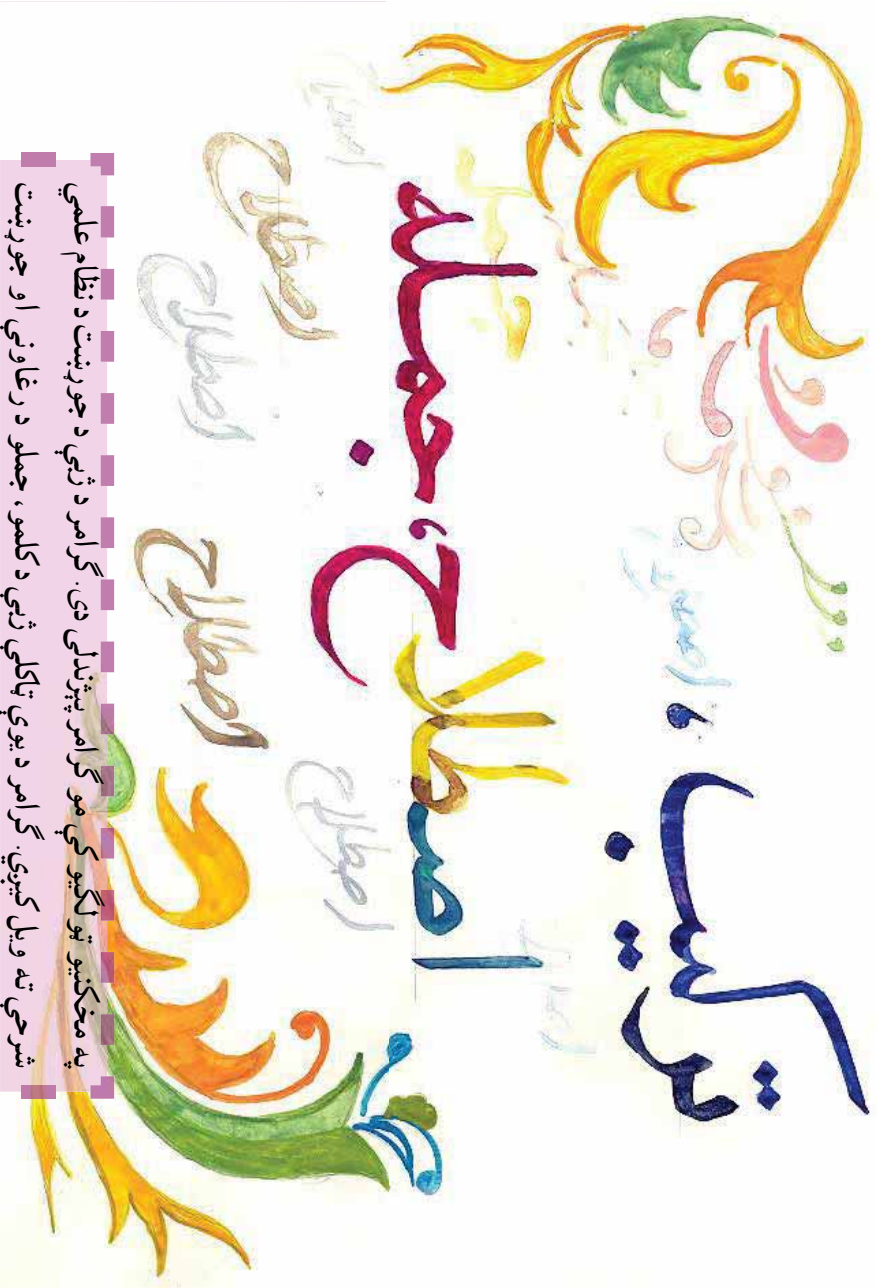 ترکیب ،
اصطلاح، جمله
اصطلاح
اصطلاح
اصطلاح
اصطلاح
اصطلاح
په مخکنیو ټولګیو کې مو ګرامر پېژندلی دی. ګرامر د ژبې د جوړښت د نظام علمي
شرحې ته ویل کیږي. ګرامر د یوې ټاکلې ژبې د کلمو، جملو د رغاونې او جوړښت